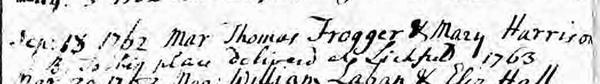 Sep: 13 1762 Mar Thomas Frogger & Mary Harrison
B to this place delivered at Lichfield 1763
1762 Mar: William Laban & Eliz Hall